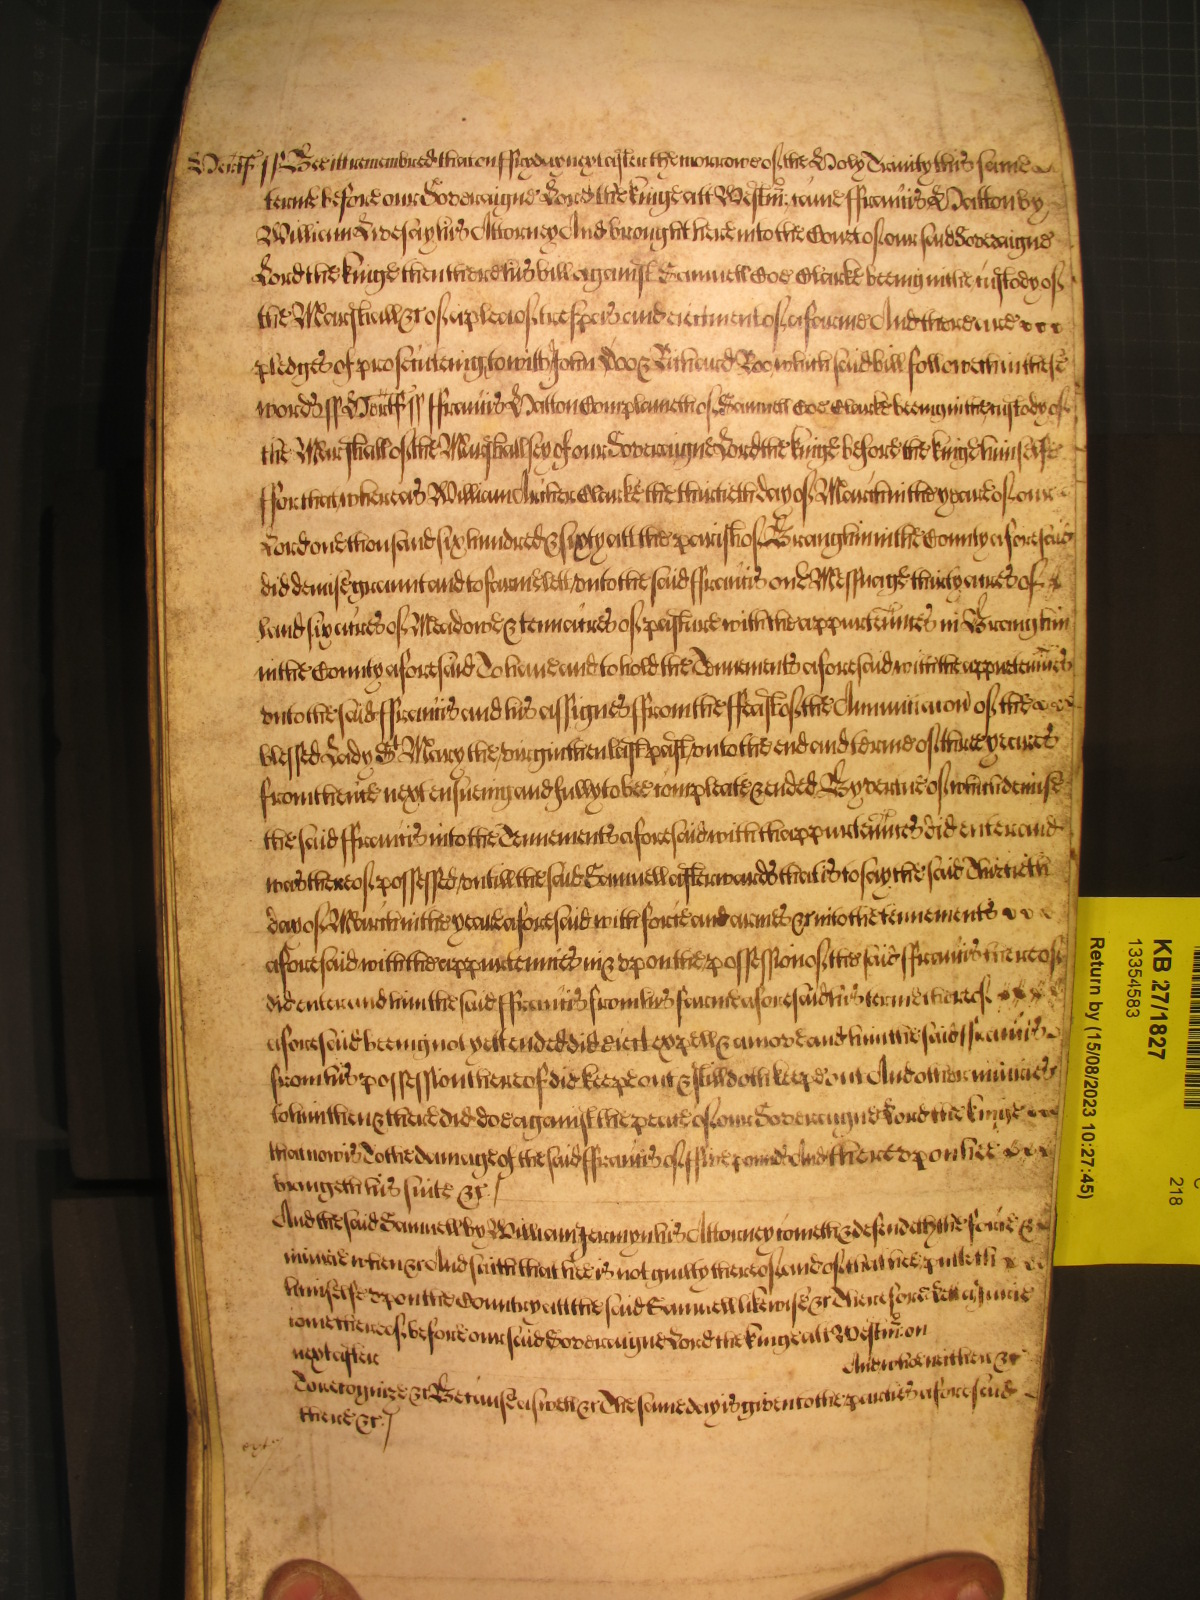 Hertf ss Bee it remembred that on ffryday next after the morrowe of the Holy Trinity this same
terme before our Soveraigne Lord the kinge att Westm came ffrancis Hatton by
William Livesay his Attorney And brought here into the Court of our said Soveraigne
Lord the kinge then there his bill against Samuell Coe Clarke beeing in the custody of
the Marshall &c of a plea of trespas and eiectment of a farme And there are
pledges of prosecuteing to witt John Doo & Richard Roo which said bill followeth in these
words ss Hertf ss ffrancis Hatton Complaineth of Samuell Coe Clarke beeing in the custody of
the Marshall of the Marshallsey of our Soveraigne Lord the kinge before the kinge himselfe
ffor that whereas William Archer Clarke the thirtieth day of March in the yeare of our
Lord one thousand six hundred & sixty att the parish of Branghin in the County aforesaid
did demise graunt and to farme lett unto the said ffrancis one Messuage thirty acres of
land six acres of Meadowe & tenn acres of pasture with the appurtennces in Branghin
in the County aforesaid To have and to hold the Tennements aforesaid with the appurtennces
unto the said ffrancis and his assignes ffrom the ffeast of the Annunciacon of the
blessed Lady St Mary the virgin then last past unto the end and terme of three yeares
from thence next ensueing and fully to bee compleate & ended By vertue of which demise
the said ffrancis into the Tennements aforesaid with thappurtennces did enter and
was thereof possessed untill the said Samuell afterwards that is to say the said Thirtieth
day of March in the yeare aforesaid with force and armes &c into the tennements
aforesaid with the appurtennces in & upon the possession of the said ffrancis thereof
did enter and him the said ffrancis from his farme aforesaid his terme thereof
aforesaid beeing not yett ended did eiect expell & amove and him the said ffrancis
from his possession thereof did keepe out & still doth keepe out And other iniuries
to him then & there did doe against the peace of our Soveraigne Lord the kinge
that now is To the damage of the said ffrancis of ffive pounds And thereupon hee
bringeth his suite &c
And the said Samuell by William Jermyn his Attorney cometh & defendeth the force &
iniurie when &c And saith that hee is not guilty thereof and of that hee putteth
himselfe upon the Country att the said Samuell likewise &c Therefore lett a Jurie
come thereof before our said Soveraigne Lord the kinge att Westm on
next after And who neither &c
To recognize &c Because aswell &c The same day is given to the parties aforesaid
there &c
KB 27/1827
13354583
218
Return by (15/08/2023 10:27:45)